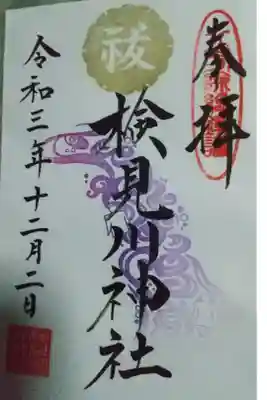 奉拝
祓
検見川神社
令和三年十二月二日